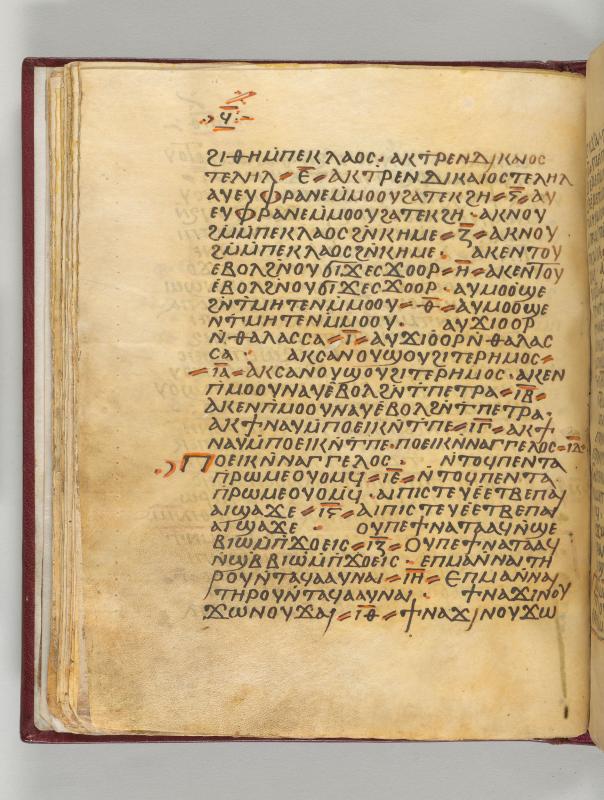 Ϥ
Ϩⲓⲑⲏⲙⲡⲉⲕⲗⲁⲟⲥ· ⲁⲕⲧⲣⲉⲛⲇⲓⲕⲁⲓⲟⲥ
ⲧⲉⲗⲏⲗ = ⲉ̅ = ⲁⲕⲧⲣⲉⲛⲇⲓⲕⲁⲓⲟⲥⲧⲉⲗⲏⲗ
ⲁⲩⲉⲩⲫⲣⲁⲛⲉⲙ̇ⲙⲟⲟⲩϩⲁⲧⲉⲕϩⲏ = ⲋ̅ = ⲁⲩ
ⲉⲩⲫⲣⲁⲛⲉⲙ̇ⲙⲟⲟⲩϩⲁⲧⲉⲕϩⲏ · ⲁⲕⲛⲟⲩ
ϩⲙ̇ⲙ̇ⲡⲉⲕⲗⲁⲟⲥϩⲛ̇ⲕⲏⲙⲉ = ⲍ̅ = ⲁⲕⲛⲟⲩ
ϩⲙ̇ⲙ̇ⲡⲉⲕⲗⲁⲟⲥϩⲛ̇ⲕⲏⲙⲉ · ⲁⲕⲉⲛⲧⲟⲩ
ⲉ̇ⲃⲟⲗϩⲛ̇ⲟⲩϭⲓϫⲉⲥϫⲟⲟⲣ = ⲏ̅ = ⲁⲕⲉⲛⲧⲟⲩ
ⲉ̇ⲃⲟⲗϩⲛ̇ⲟⲩϭⲓϫⲉⲥϫⲟⲟⲣ · ⲁⲩⲙⲟⲟϣⲉ
ϩⲛ̇ⲧⲙⲏⲧⲉⲛ̇ⲙ̇ⲙⲟⲟⲩ = ⲑ̅ = ⲁⲩⲙⲟⲟϣⲉ
ⲛ̇ⲧⲙⲏⲧⲉⲛ̇ⲙ̇ⲙⲟⲟⲩ · ⲁⲩϫⲓⲟⲟⲣ
ⲛ̇ⲑⲁⲗⲁⲥⲥⲁ = ⲓ̅ = ⲁⲩϫⲓⲟⲟⲣⲛ̇ⲑⲁⲗⲁⲥ
ⲥⲁ · ⲁⲕⲥⲁⲛⲟⲩϣⲟⲩϩⲓⲧⲉⲣⲏⲙⲟⲥ =
= ⲓ̅ⲁ̅ = ⲁⲕⲥⲁⲛⲟⲩϣⲟⲩϩⲓⲧⲉⲣⲏⲙⲟⲥ · ⲁⲕⲉⲛ
ⲡ̇ⲙⲟⲟⲩⲛⲁⲩⲉ̇ⲃⲟⲗϩⲛ̇ⲧⲡⲉⲧⲣⲁ = ⲓ̅ⲃ̅ =
ⲁⲕⲉⲛⲡ̇ⲙⲟⲟⲩⲛⲁⲩⲉ̇ⲃⲟⲗϩⲛ̇ⲧⲡⲉⲧⲣⲁ ·
ⲁⲕϯⲛⲁⲩⲙ̇ⲡⲟⲉⲓⲕⲛ̇ⲧⲡⲉ = ⲓ̅ⲅ̅ = ⲁⲕϯ
ⲛⲁⲩⲙ̇ⲡⲟⲉⲓⲕⲛ̇ⲧⲡⲉ · ⲡⲟⲉⲓⲕⲛ̇ⲛⲁⲅⲅⲉⲗⲟⲥ = ⲓ̅ⲇ̅ =
Ⲡⲟⲉⲓⲕⲛ̇ⲛⲁⲅⲅⲉⲗⲟⲥ · ⲛ̇ⲧⲟϥⲡⲉⲛⲧⲁ
ⲡ̇ⲣⲱⲙⲉⲟⲩⲟⲙϥ̇ = ⲓ̅ⲉ̅ = ⲛ̇ⲧⲟϥⲡⲉⲛⲧⲁ
ⲡ̇ⲣⲱⲙⲉⲟⲩⲟⲙϥ̇ · ⲁⲓⲡⲓⲥⲧⲉⲩⲉⲉⲧⲃⲉⲡⲁⲓ
ⲁⲓϣⲁϫⲉ = ⲓ̅ⲋ̅ = ⲁⲓⲡⲓⲥⲧⲉⲩⲉⲉⲧⲃⲉⲡⲁⲓ
ⲁⲓϣⲁϫⲉ · ⲟⲩⲡⲉϯⲛⲁⲧⲁⲁϥⲛ̇ϣⲉ
ⲃⲓⲱⲙ̇ⲡ̇ϫⲟⲉⲓⲥ = ⲓ̅ⲍ̅ = Ⲟⲩⲡⲉϯⲛⲁⲧⲁⲁϥ
ⲛ̇ϣⲃⲃⲓⲱⲙ̇ⲡ̇ϫⲟⲉⲓⲥ · ⲉⲡⲙⲁⲛⲛⲁⲓⲧⲏ
ⲣⲟⲩⲛ̇ⲧⲁϥⲁⲁⲩⲛⲁⲓ = ⲓ̅ⲏ̅ = Ⲉⲡⲙⲁⲛⲛⲁⲓ
ⲧⲏⲣⲟⲩⲛ̇ⲧⲁϥⲁⲁⲩⲛⲁⲓ · ϯⲛⲁϫⲓⲛⲟⲩ
ϫⲱⲛⲟⲩϫⲁⲓ = ⲓ̅ⲑ̅ = ϯⲛⲁϫⲓⲛⲟⲩϫⲱ